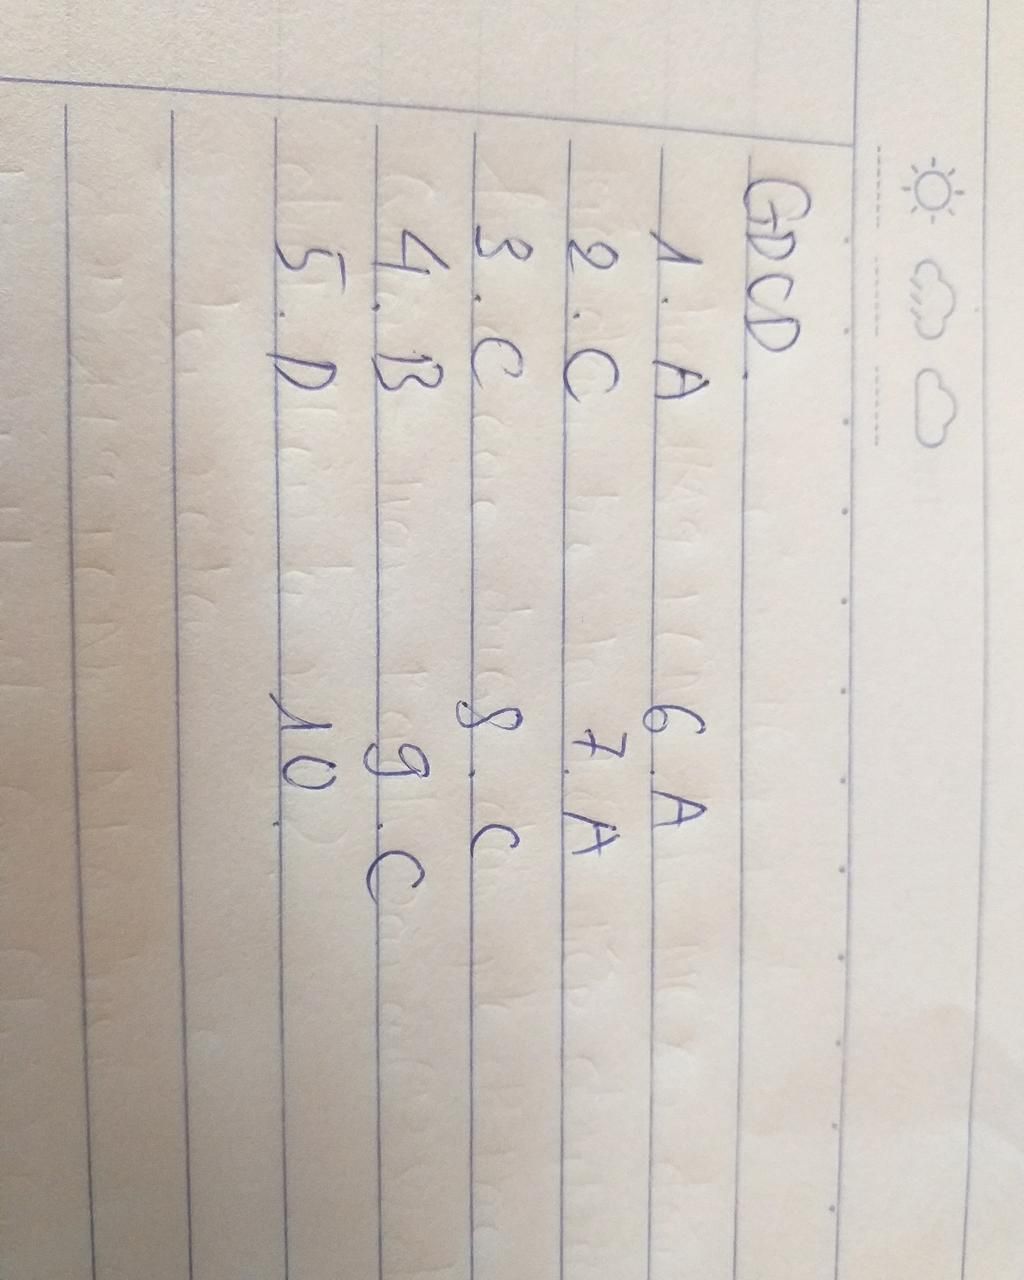 GDCD.
1. A 6. A
2. C 7. A
3. C 8. C
4. B 9. C
5. D 10.